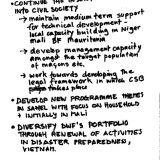 • CONTINUE THE
INTO CIVIL SOCIETY
→ maintain medium term support
for technical development -
local capacity building in Niger
Mali & Mauritania
→ develop management capacity
amongst the target population
of masons etc.
→ work towards developing the
legal framework within CSB
takes place
• DEVELOP NEW PROGRAMME THEMES
IN SAHEL WITH FOCUS ON HOUSEHOLD
+ INITIALLY IN MALI
• DIVERSIFY DWF'S PORTFOLIO
THROUGH RENEWAL OF ACTIVITIES
IN DISASTER PREPAREDNESS,
VIETNAM.